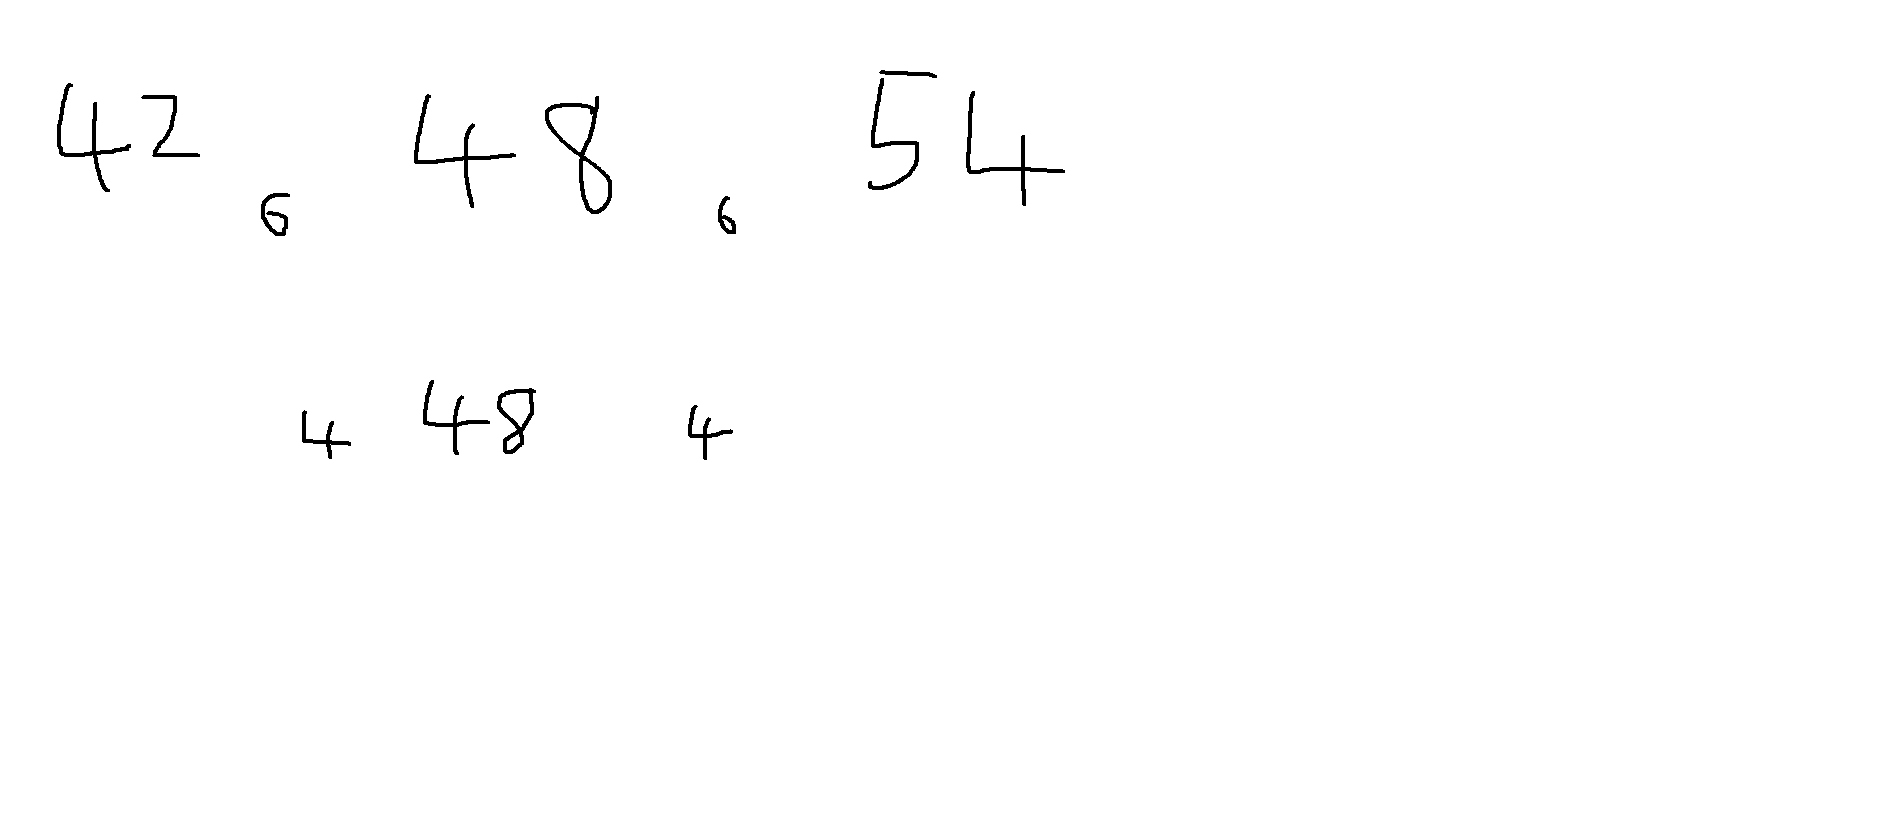 42 6 48 6 54
4 48 4